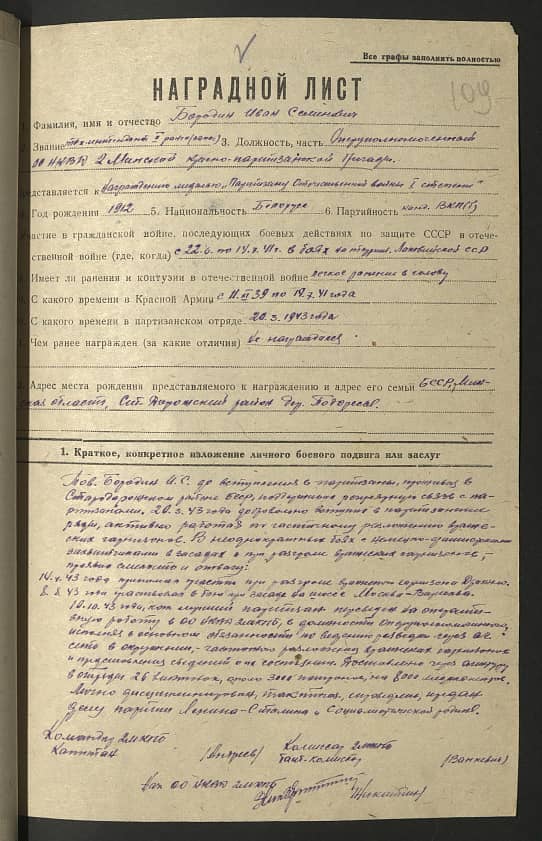 Все графы заполнить полностью
109
НАГРАДНОЙ ЛИСТ
1. Фамилия, имя и отчество Бородин Иван Семенович
2. Звание техн-интендант I ранга (запас) 3. Должность, часть Оперуполномоченный
ОО НКВД 2 Минской красно-партизанской бригады.
представляется к награждению медалью „Партизану Отечественной войны I степени"
4. Год рождения 1912 5. Национальность Белорус 6. Партийность канд. ВКП(б)
Участие в гражданской войне, последующих боевых действиях по защите СССР в отече-
ственной войне (где, когда) с 22.6. по 14.7.41г. в боях на территории Латвийской ССР
Имеет ли ранения и контузии в отечественной войне легкое ранение в голову
С какого времени в Красной Армии с 11.39 по 14.7.41 года
С какого времени в партизанском отряде 20.3.1943 года
Чем ранее награжден (за какие отличия) не награждался
Адрес места рождения представляемого к награждению и адрес его семьи БССР, Мин-
ская область, Ст. Дорожский район дер.
1. Краткое, конкретное изложение личного боевого подвига или заслуг
Тов. Бородин И.С. до вступления в партизаны, проживая в
Стародорожском районе БССР, поддерживал регулярную связь с па-
ртизанами, 20.3.43 года добровольно вступил в партизанские
ряды, активно работал по частичному разложению враже-
ских гарнизонов. В неоднократных боях с немецко-фашистскими
захватчиками в засадах и при разгроме вражеских гарнизонов,
проявил смелость и отвагу:
14.4.43 года принимал участие при разгроме вражеского гарнизона
8.8.43 года участвовал в бою при засаде на шоссе Москва-Варшава.
10.10.43 года, как лучший партизан переведен на операти-
вную работу в ОО НКВД 2МКПБ, в должности Оперуполномоченного,
исполнял в основном обязанности по ведению разведки через аг.
сеть в окружении, частичном разложении вражеских гарнизонов
и представления сведений о их состоянии. Доставлено через агентуру
в отряды 26 винтовок, около 3000 патронов, на 8000 медикаментов.
Лично дисциплинирован, тактичен, справедлив, предан
делу партии Ленина-Сталина и Социалистической родине.
Командир 2МКПБ
Капитан
Комиссар 2МКПБ
Бат-комиссар
Нач ОО НКВД 2МКПБ
Никитин